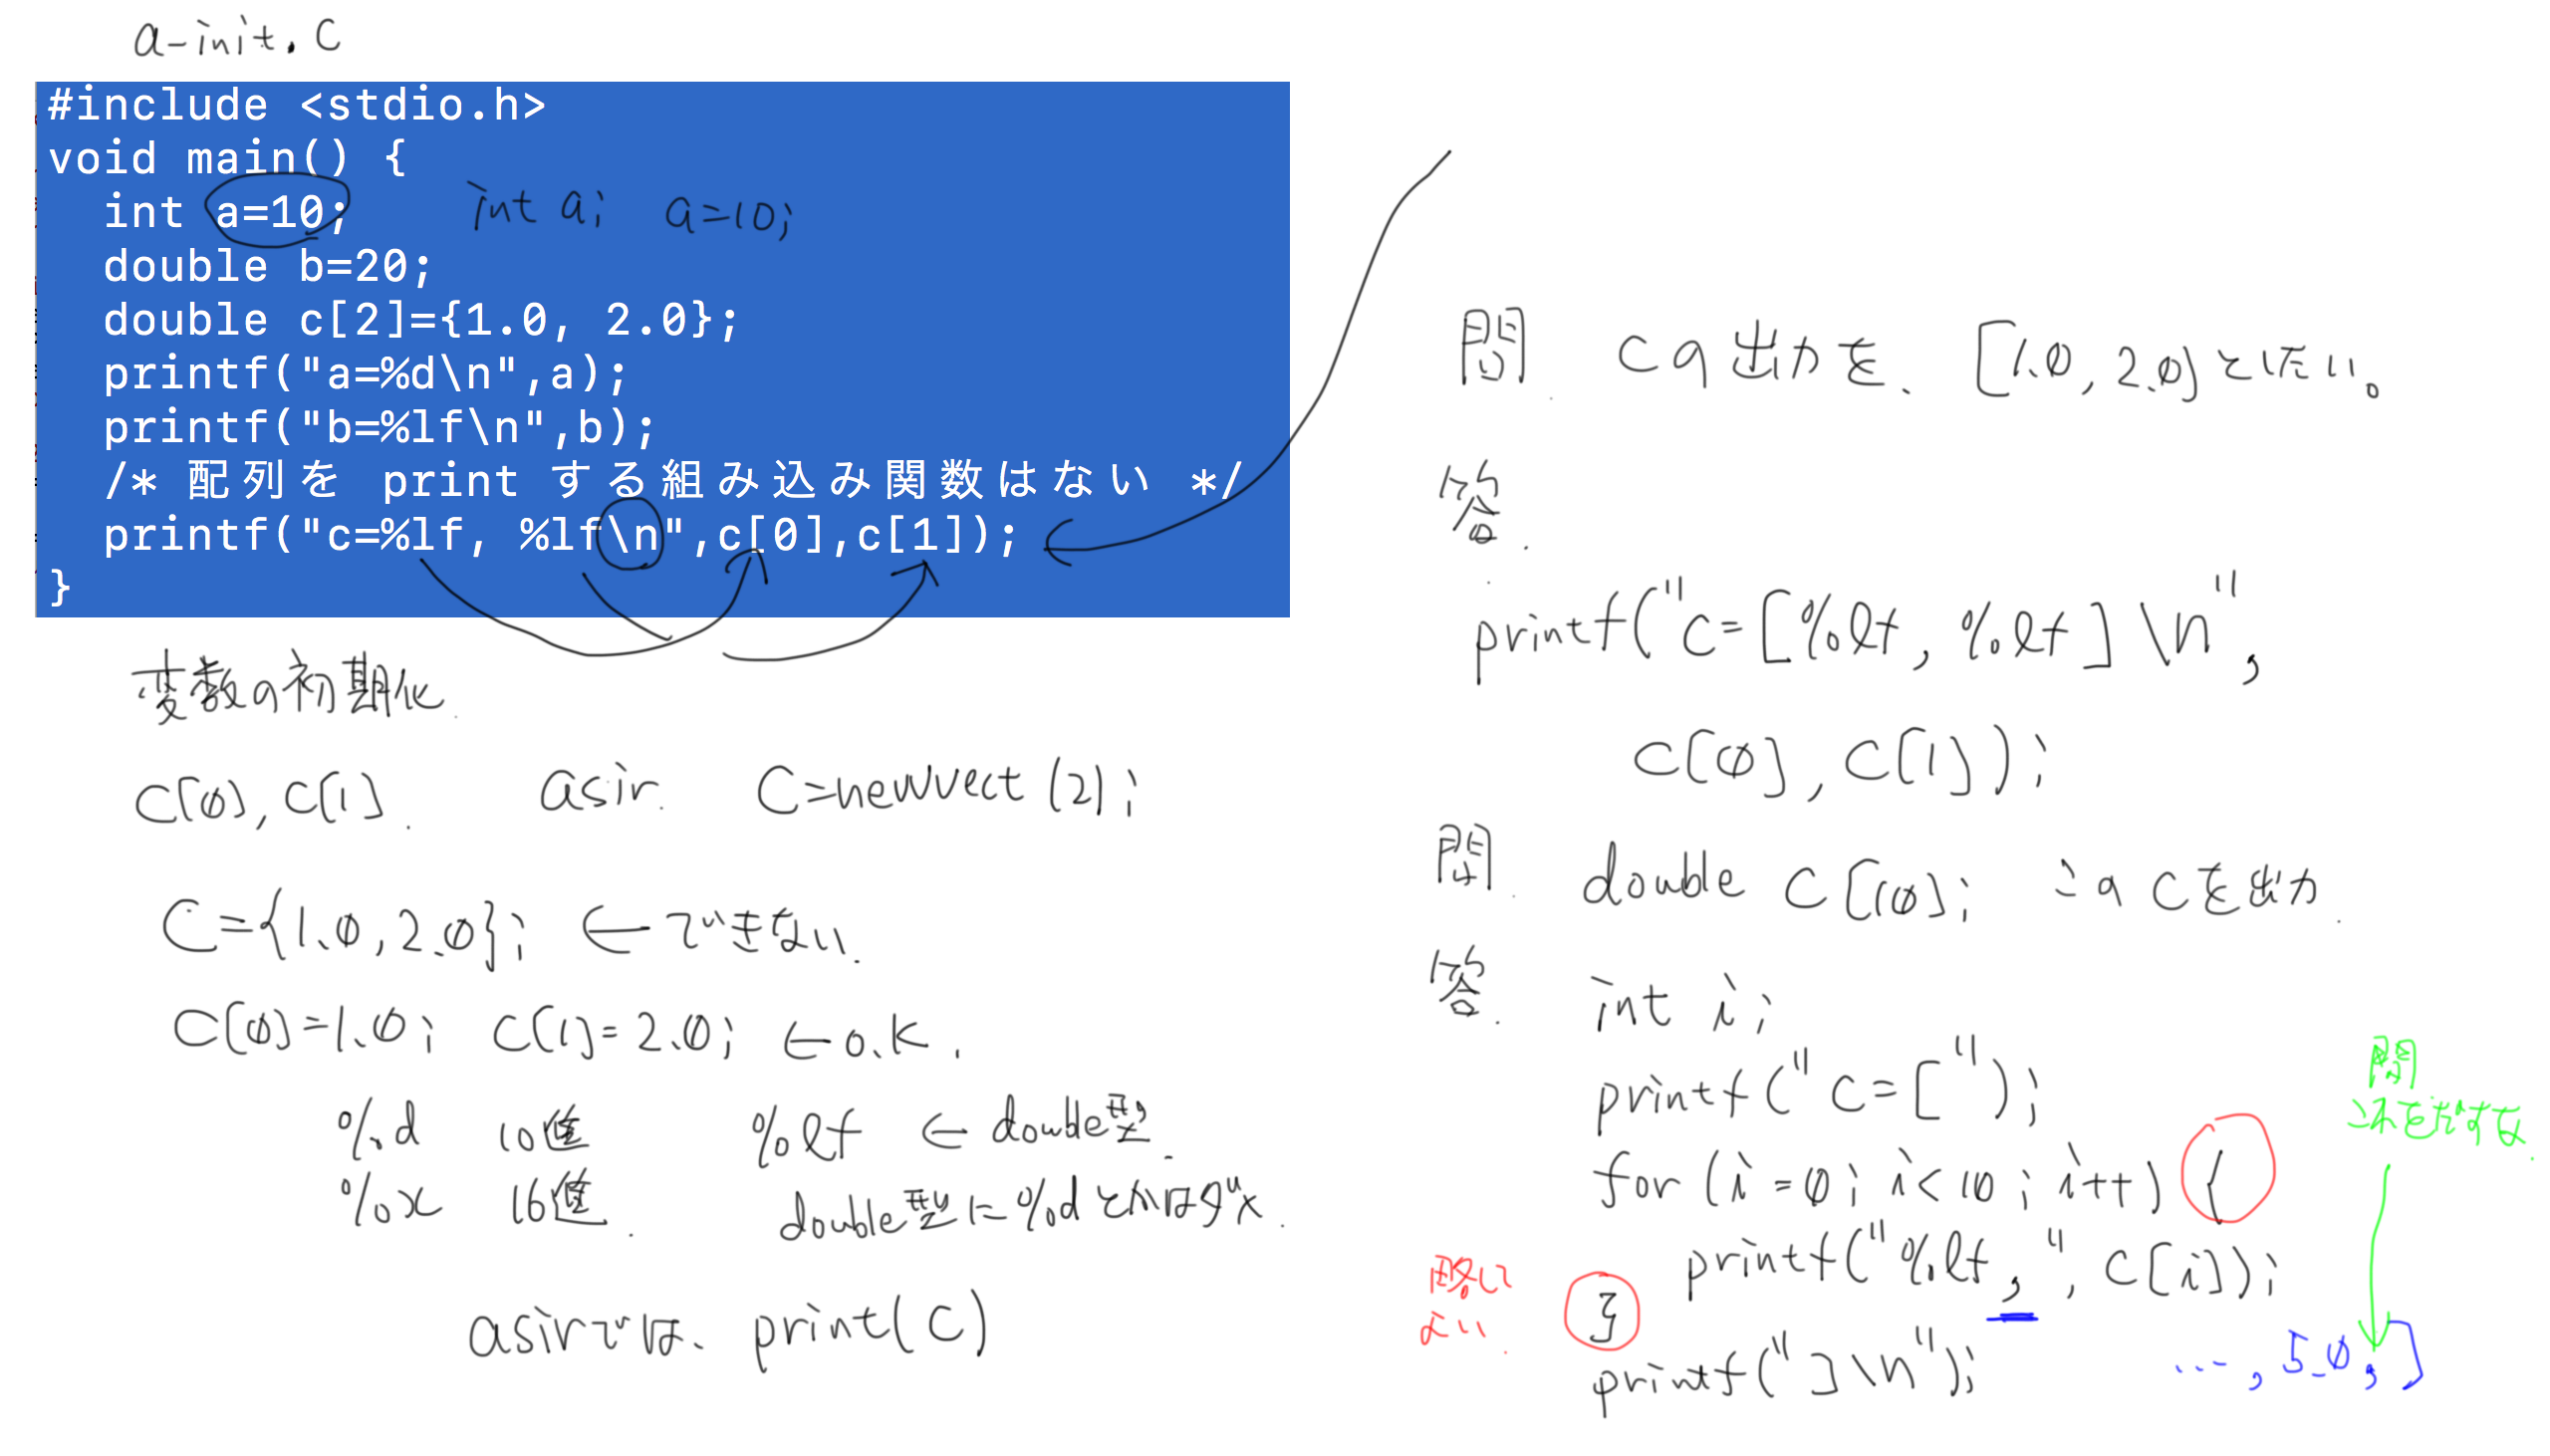 a-init.c
#include <stdio.h>
void main() {
  int a=10;   int a;  a=10;
  double b=20;
  double c[2]={1.0, 2.0};
  printf("a=%d\n",a);
  printf("b=%lf\n",b);
  /* 配列を print する組み込み関数はない */
  printf("c=%lf, %lf\n",c[0],c[1]);
}
変数の初期化.
c[0], c[1].  asir.  C=newvect(2);
C={1.0,2.0}; ←できない.
C[0]=1.0; C[1]=2.0; ←o.k.
%d 10進  %lf ← double型.
%x 16進.  double型に%dとかはダメ.
asirでは、print(C)
問. cの出力を、[1.0, 2.0]としたい。
答.
printf("c=[%lf, %lf]\n",
c[0], c[1]);
問. double C[10]; このcを出力.
答. int i;
printf("c=[");
for (i=0; i<10; i++) {
printf("%lf, ", c[i]);
}
printf("]\n");
略して
よい.
問
これをだすな.
…, 5.0, ]